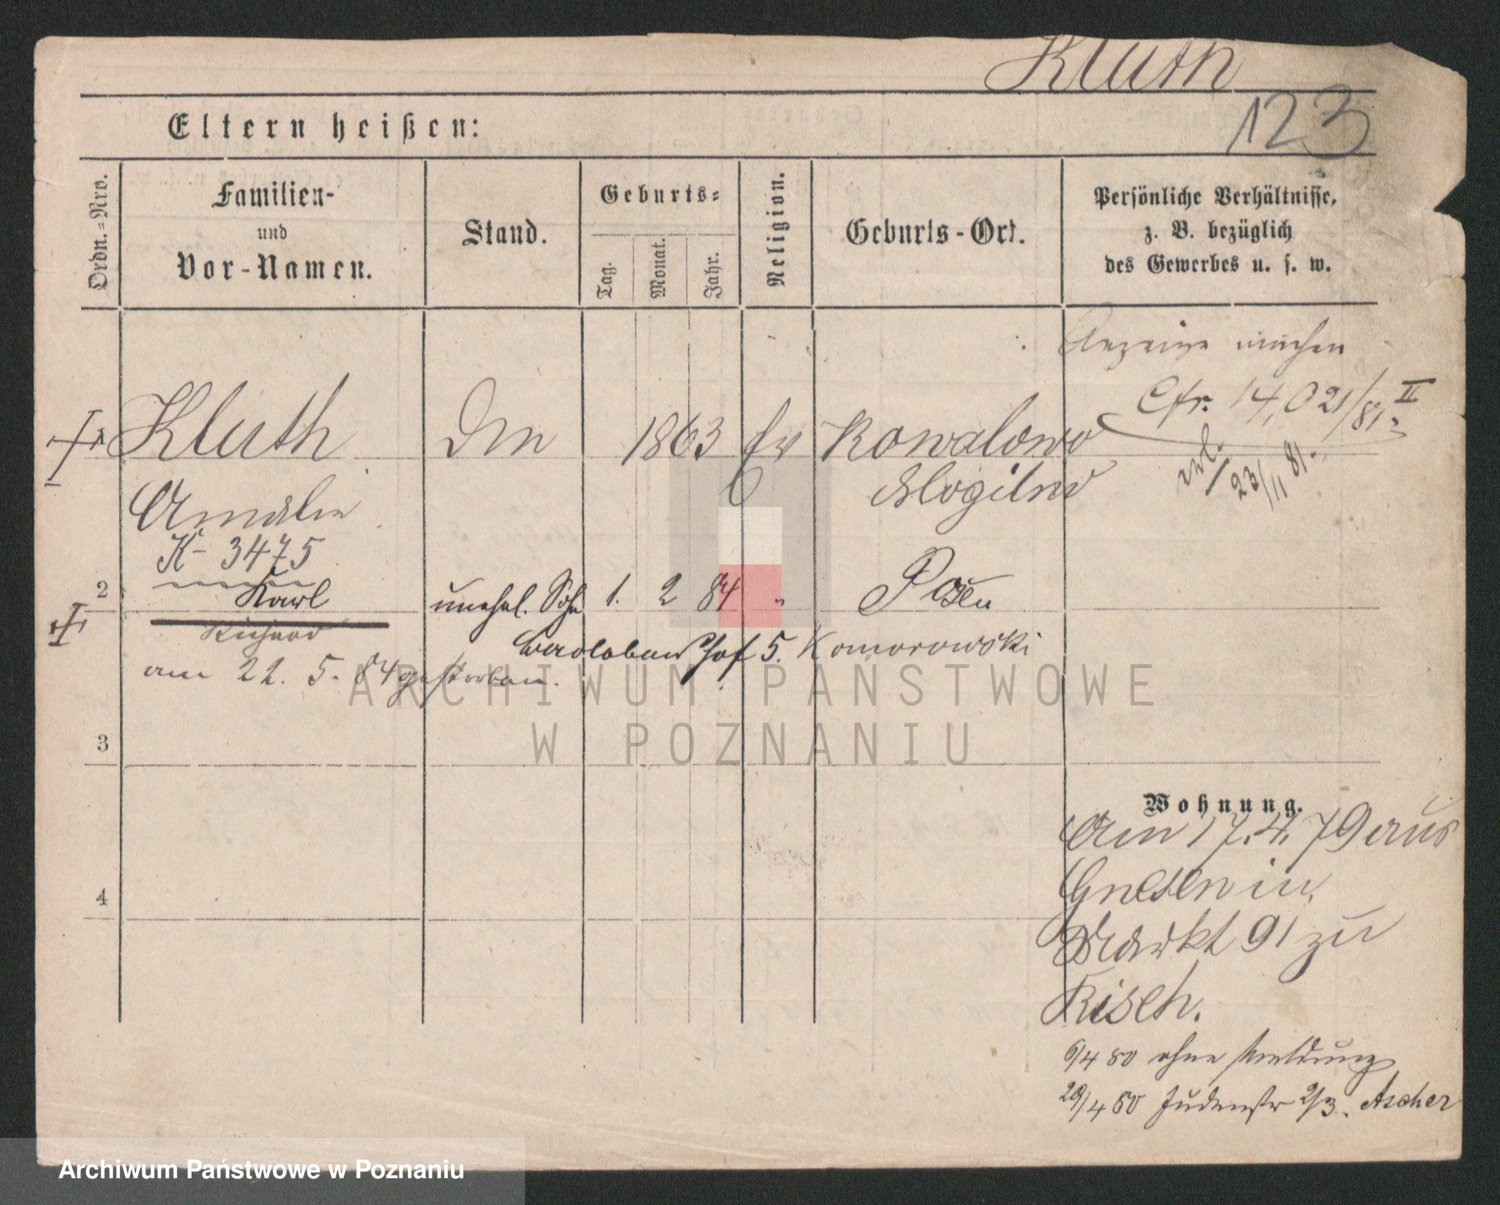 Kluth
123
Eltern heißen:
Ordn.-Nro.
Familien-
und
Vor-Namen.
Stand.
Geburts-
Tag.
Monat.
Jahr.
Religion.
Geburts-Ort.
Persönliche Verhältnisse,
z. B. bezüglich
des Gewerbes u. s. w.
Anzeige machen
Cfr. 14,021/81. II
23/11 81.
1 Kluth 1863 ev Kowalowo
Mogilno
Amalie
K- 3475
2 Karl unehl. Sohn 1. 2 84 " Posen
Richard
Hof 5. Komorowski
am 22. 5. 84 gestorben.
3
4
Wohnung.
Am 17.4.79 aus
Gnesen in
Markt 91 zu
Kisch.
6/4 80 ohne Meldung
29/4 80 Judenstr 2/3. Ascher
ARCHIWUM PAŃSTWOWE
W POZNANIU
Archiwum Państwowe w Poznaniu